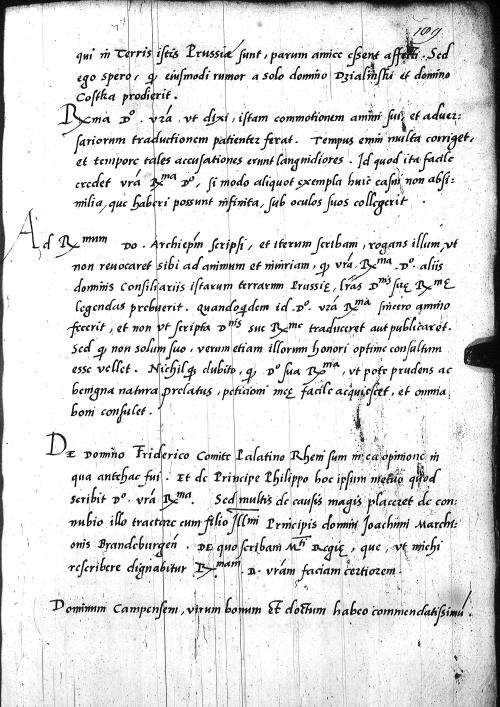 109
qui in Terris istis Prussiæ sunt, parum amice essent affecti. Sed
ego spero, q, eiusmodi rumor a solo domino Dzialinski et domino
Costka prodierit.
Rma D°. vra, vt dixi, istam commotionem animi sui, et aduer-
sariorum traductionem patienter ferat. Tempus enim multa corriget,
et tempore tales accusationes erunt languidiores. Id quod ita facile
credet vrá Rma D°, si modo aliquot exempla huic casui non absi-
milia, que haberi possunt infinita, sub oculos suos collegerit.
Ad Rmum Do. Archiepm scripsi, et iterum scribam, rogans illum, vt
non reuocaret sibi ad animum et iniuriam, q, vrá. Rma. D°. aliis
dominis Consiliariis istarum terrarum Prussię, lrãs Dnis suę Rmę
legendas prebuerit. quandoqdem id. D°. vrá Rma sincero animo
fecerit, et non vt scripta Dnis sue Rme traduceret aut publicaret.
Sed q, non solum suo, verum etiam illorum honori optime consultum
esse vellet. Nichil q, dubito, q, D° sua Rma, vt pote prudens ac
benigna natura prelatus, peticioni meę facile acquiescet, et omnia
boni consulet.
DE Domino Friderico Comite Palatino Rheni sum in ea opinione in
qua antehac fui. Et de Principe Philippo hoc ipsum metuo quod
scribit D°. vrá Rma. Sed multis de causis magis placeret de con-
nubio illo tractare cum filio Illmi Principis domini Joachimi Marchi-
onis Brandeburgeñ. DE quo scribam Mti Regię, que, vt michi
rescribere dignabitur Rmam. D. vrám faciam certiorem.
Dominum Campensem, virum bonum Et doctum habeo commendatissimũ.